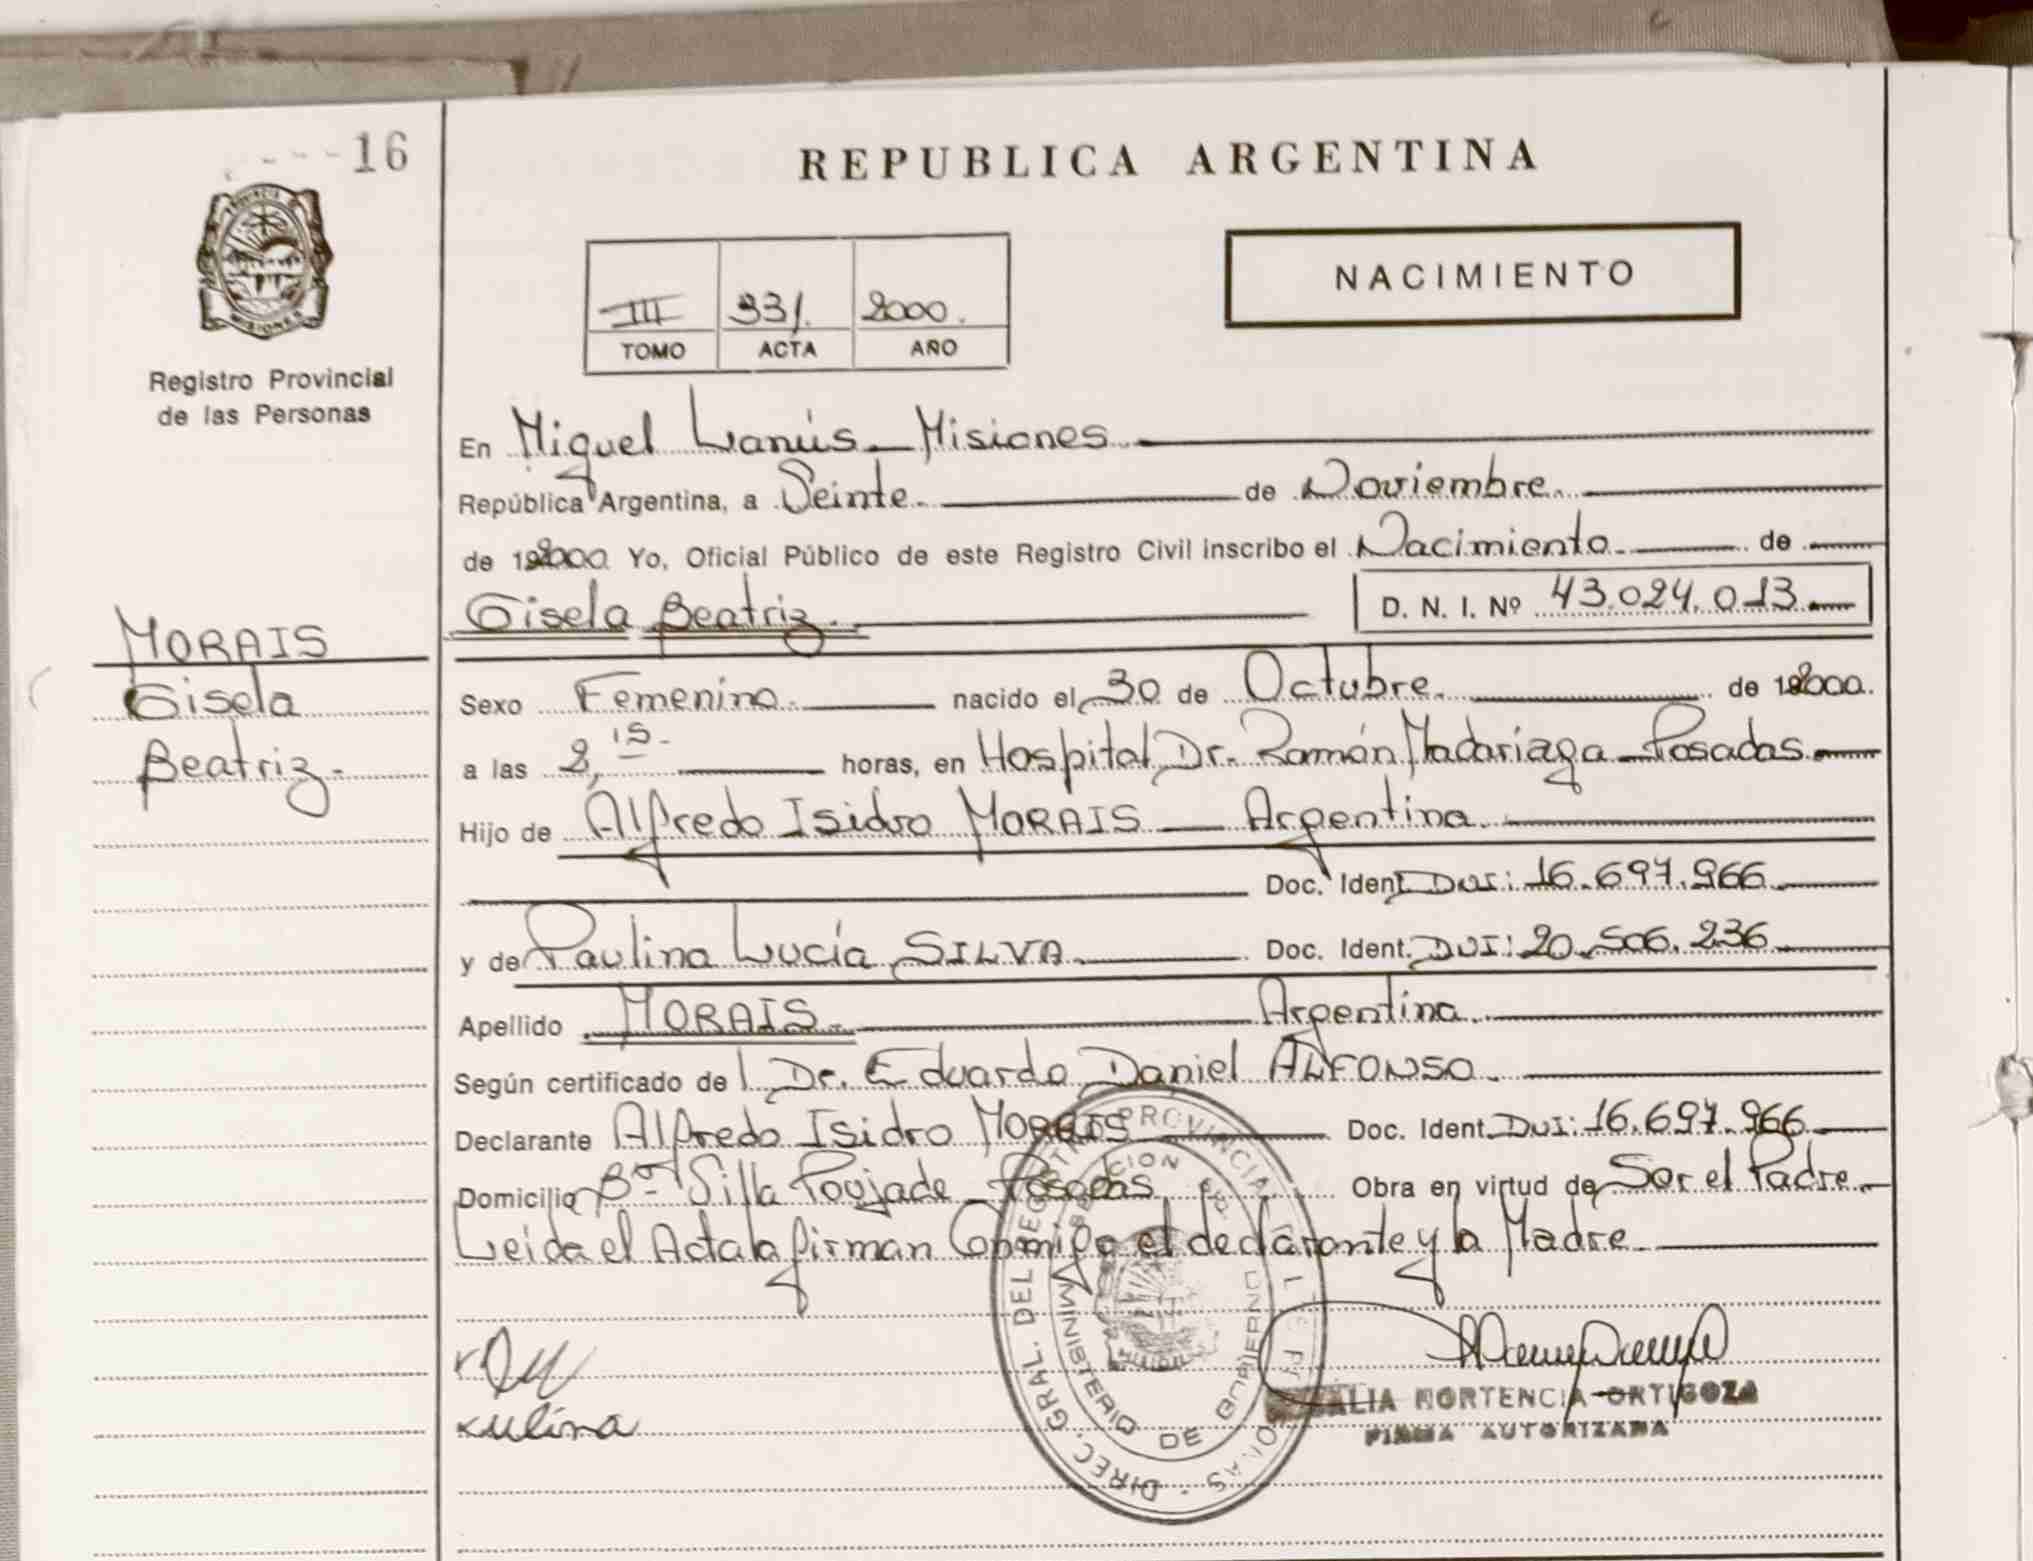 16
REPUBLICA ARGENTINA
PROVINCIA
MISIONES
NACIMIENTO
III 331. 2000.
TOMO ACTA AÑO
Registro Provincial
de las Personas
En Miguel Lanús - Misiones
República Argentina, a Veinte. de Noviembre.
de 2000 Yo, Oficial Público de este Registro Civil inscribo el Nacimiento de
Gisela Beatriz. D. N. I. Nº 43.024.013
MORAIS
Gisela
Beatriz.-
Sexo Femenino. nacido el 30 de Octubre. de 2000.
a las 8,15 horas, en Hospital Dr. Ramón Madariaga - Posadas.
Hijo de Alfredo Isidro MORAIS - Argentina.
Doc. Ident. DNI: 16.697.966
y de Paulina Lucía SILVA. Doc. Ident. DNI: 20.506.236
Apellido MORAIS. Argentina.
Según certificado de l Dr. Eduardo Daniel ALFONSO.
Declarante Alfredo Isidro MORAIS Doc. Ident. DNI: 16.697.966
Domicilio Bº Villa Poujade - Posadas Obra en virtud de Ser el Padre.
Leida el Acta la firman Conmigo el declarante y la Madre
DIREC. GRAL. DEL REGISTRO PROVINCIAL DE LAS PERSONAS
MINISTERIO DE GOBIERNO
HORTENCIA ORTIGOZA
FIRMA AUTORIZADA